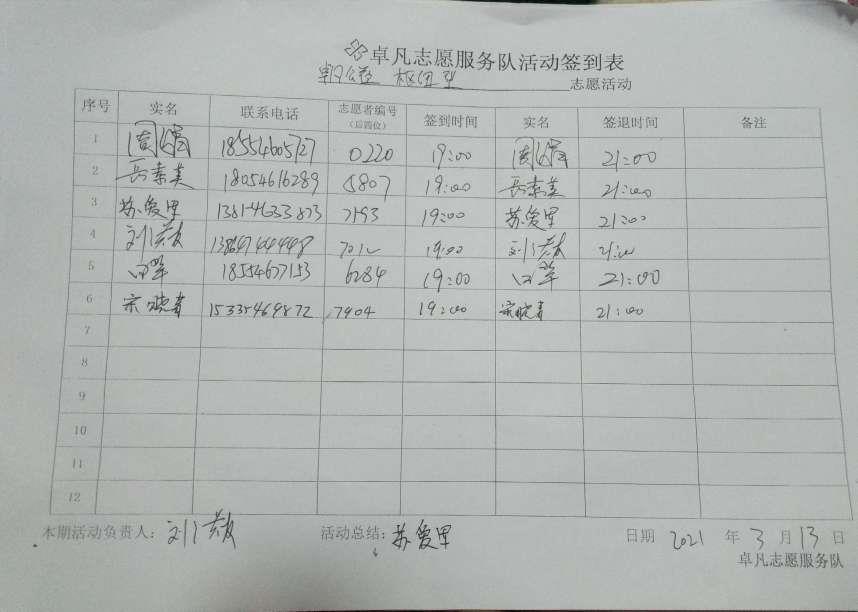 卓凡志愿服务队活动签到表
志愿活动
序号 实名 联系电话 志愿者编号（后四位） 签到时间 实名 签退时间 备注
1 18554605727 0220 19:00 21:00
2 18054616289 5807 19:00 21:00
3 苏爱军 13814633873 7193 19:00 苏爱军 21:00
4 13864744448 19:00 21:00
5 18554677153 6284 19:00 21:00
6 宋晓青 15335469872 7904 19:00 宋晓青 21:00
7
8
9
10
11
12
本期活动负责人： 活动总结：苏爱军 日期 2021 年 3 月 13 日
卓凡志愿服务队